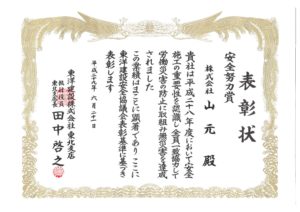 表彰状
安全努力賞
株式会社 山元 殿
貴社は平成二十八年度において安全
施工の重要性を認識し全員一致協力して
労働災害の防止に取組み無災害を達成
されました
この業績はまことに顕著でありここに
東洋建設安全協議会表彰基準に基づき
表彰します
平成二十九年 六月 二十一日
東洋建設株式会社東北支店
執行役員
東北支店長
田中啓之